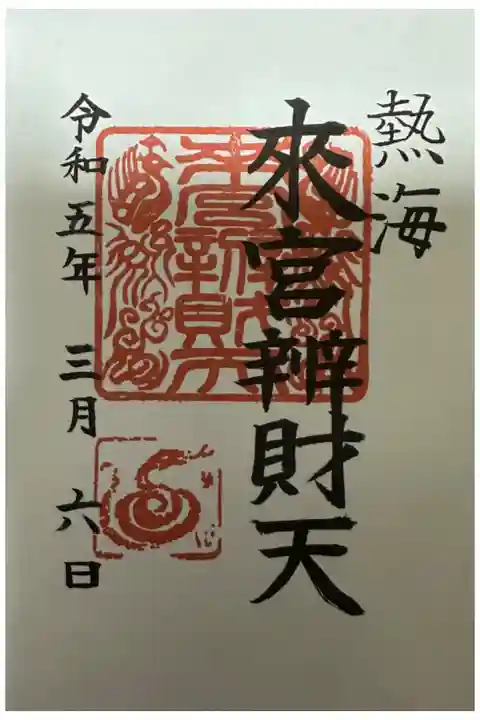 熱海
來宮辨財天
令和五年 三月 六日